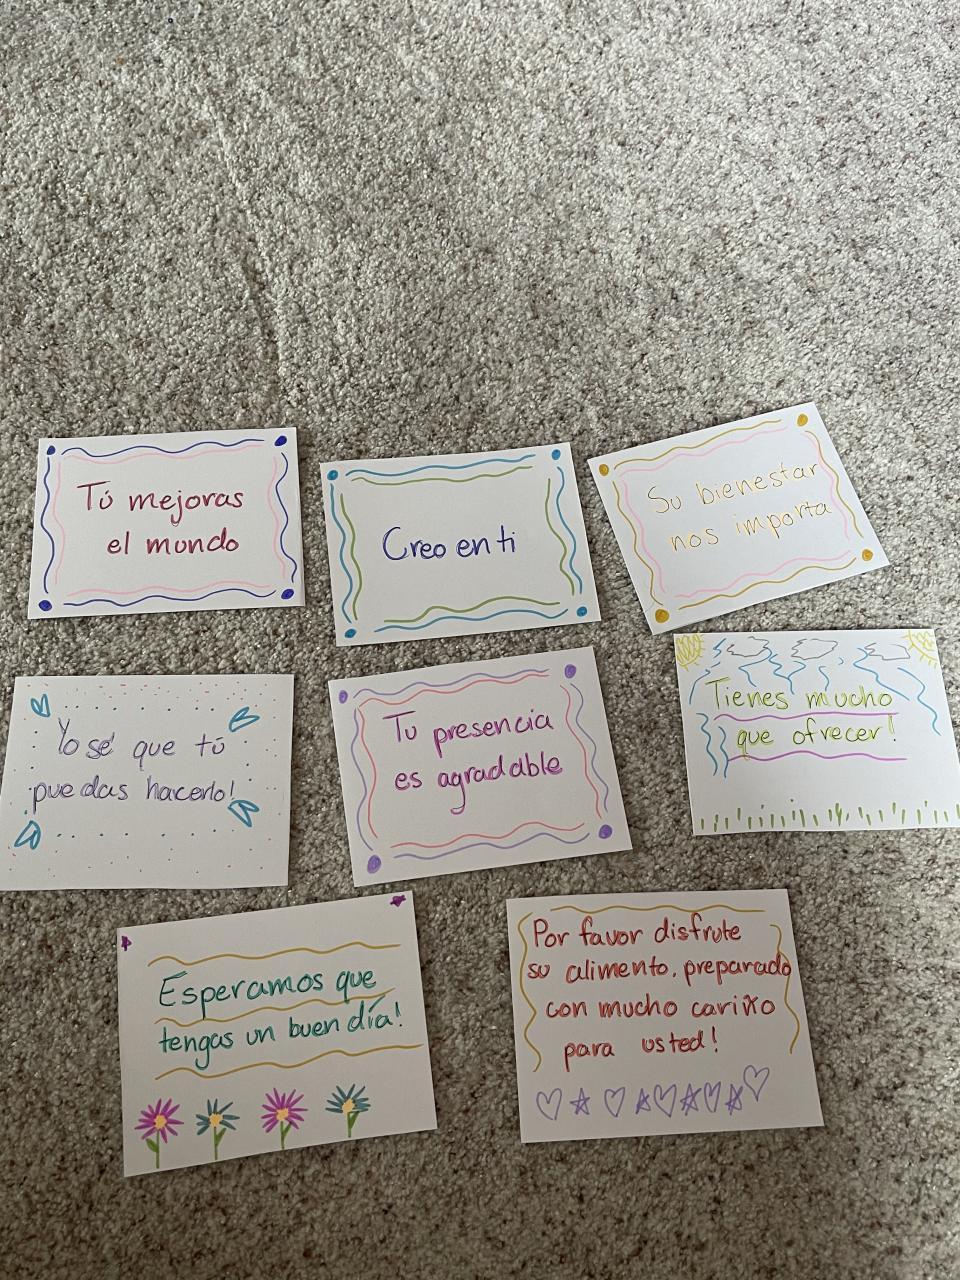 Tú mejoras
el mundo
Creo en ti
Su bienestar
nos importa
Yo sé que tú
puedas hacerlo!
Tu presencia
es agradable
Tienes mucho
que ofrecer!
Esperamos que
tengas un buen día!
Por favor disfrute
su alimento. preparado
con mucho cariño
para usted!